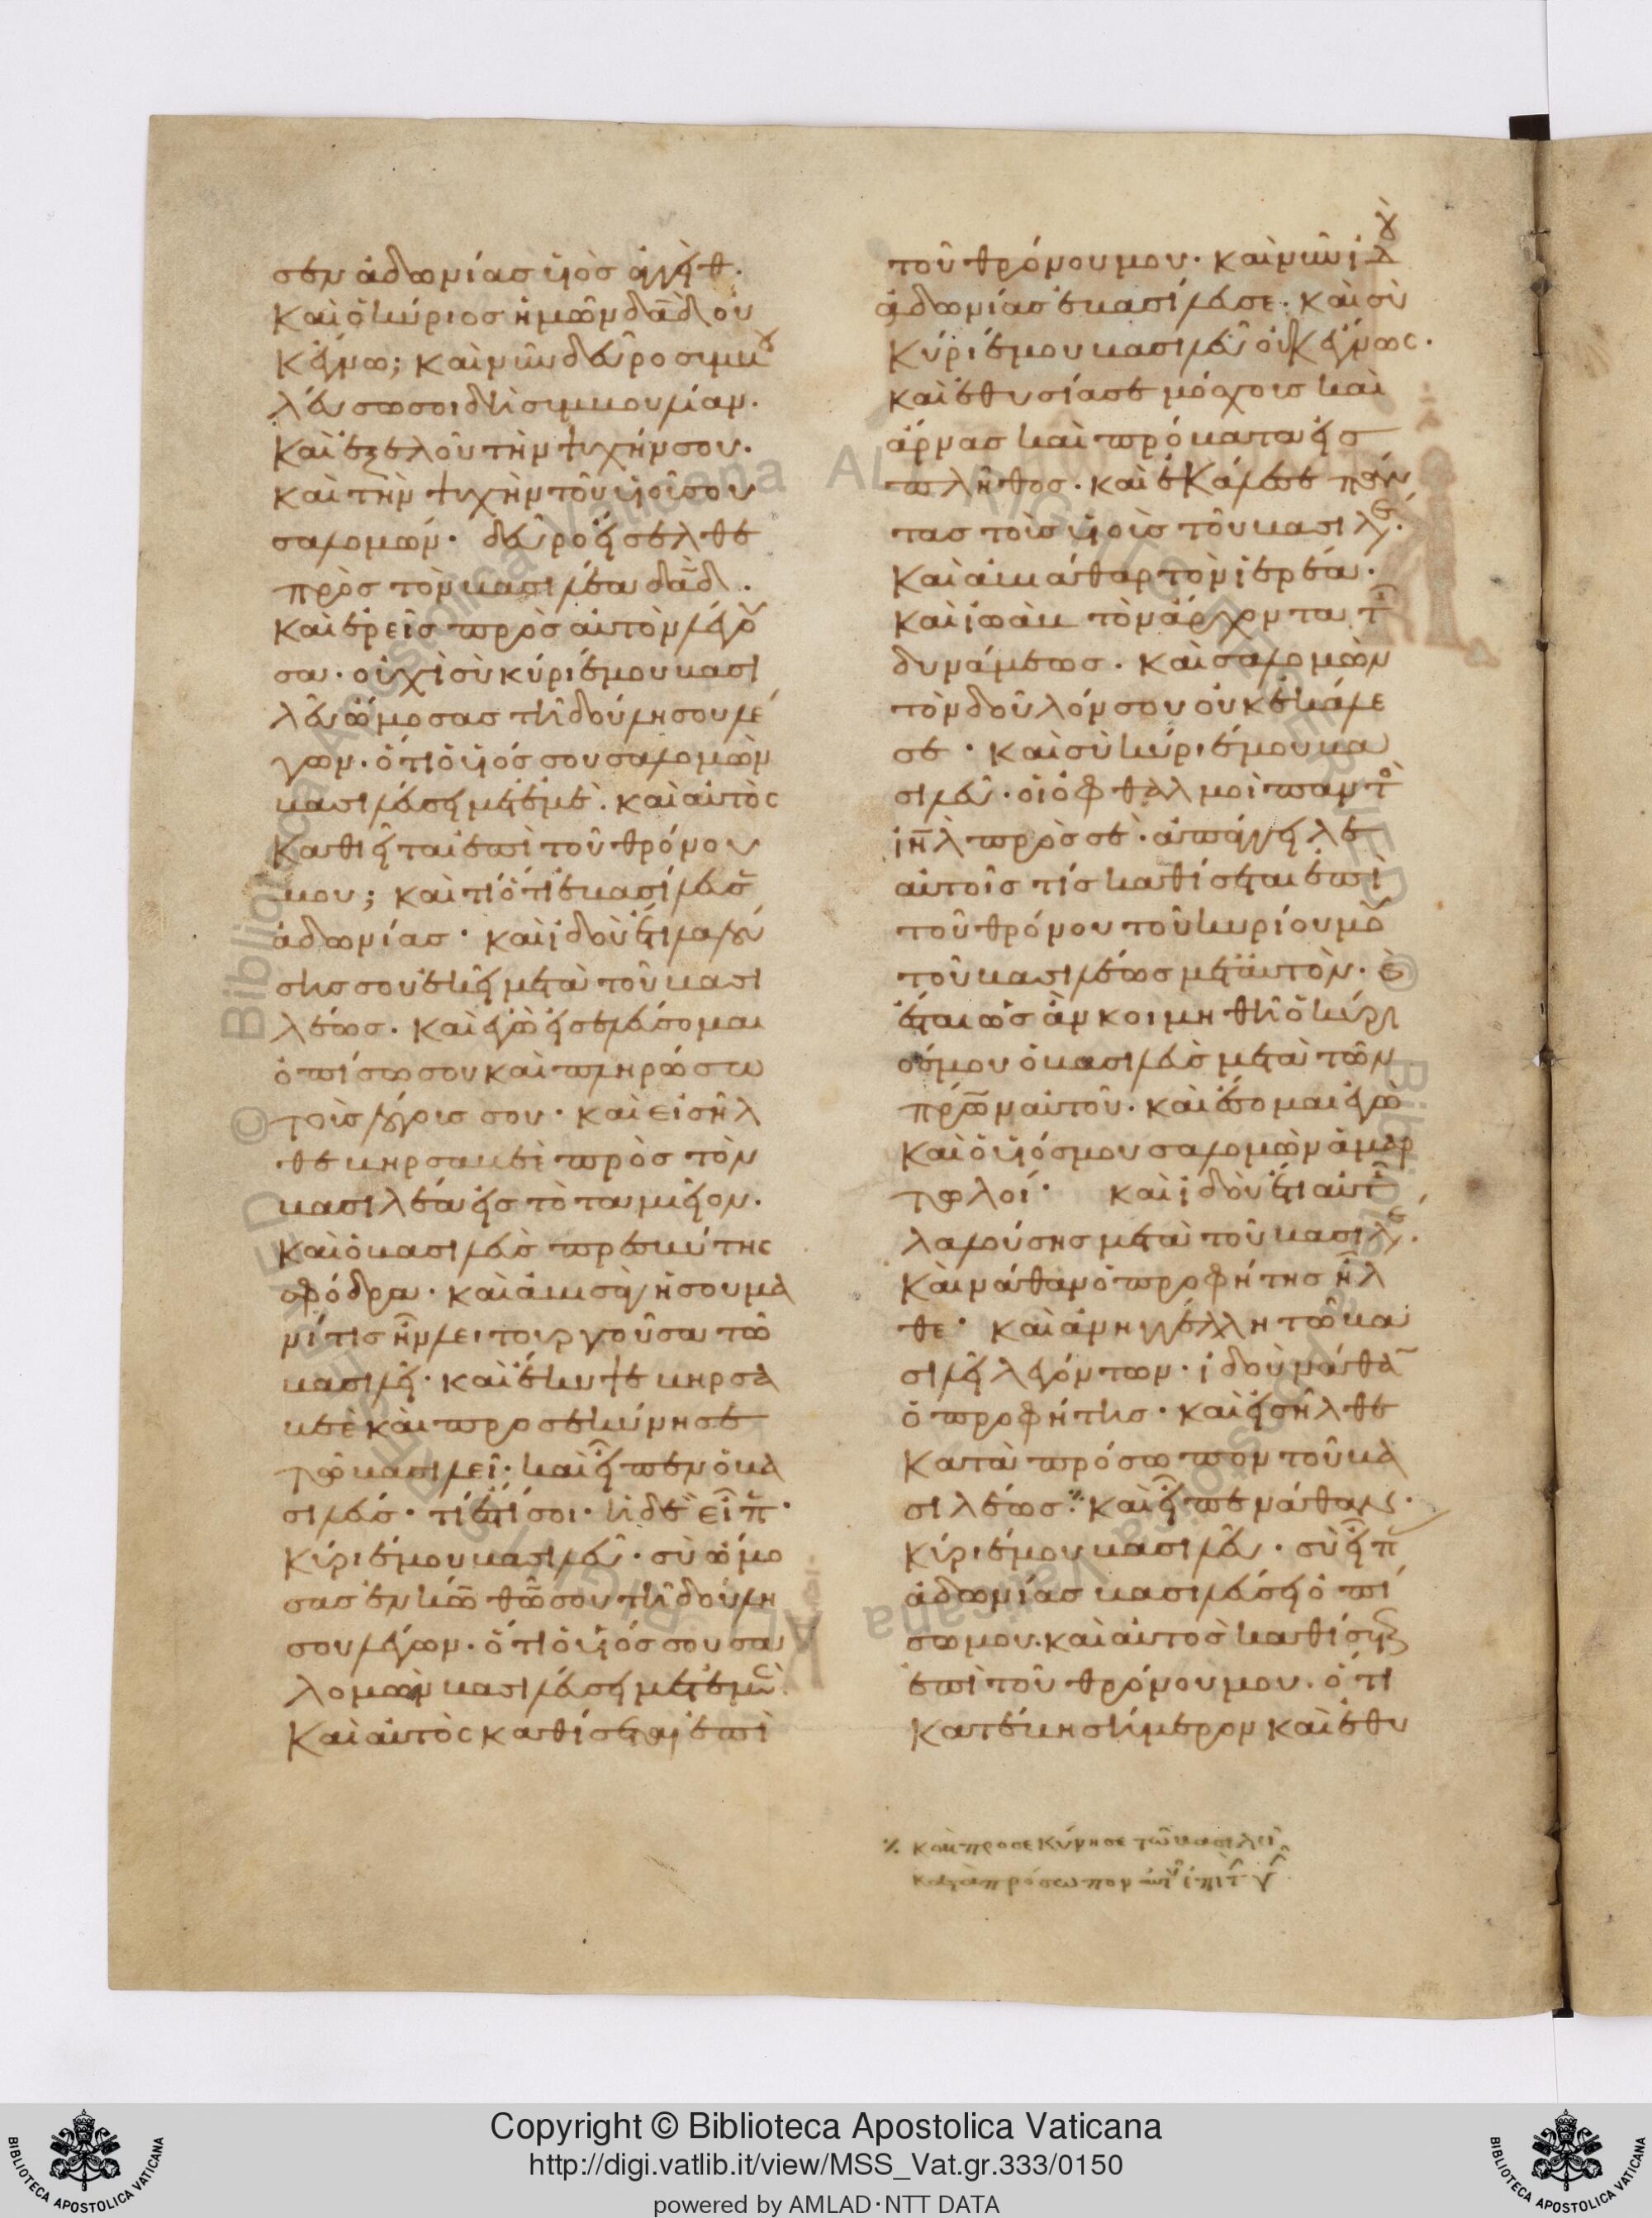 σεν ἀδωνίας υἱὸς ἀγγὲιθ.
καὶ ὁ κύριος ἡμῶν δᾱδ οὐκ
ἔγνω; καὶ νῦν δεῦρο συμβου
λεύσω σοι δὴ συμβουλίαν.
καὶ ἐξελοῦ τὴν ψυχήν σου.
καὶ τὴν ψυχὴν τοῦ υἱοῦ σου
σαλομών. δεῦρο εἴσελθε
πρὸς τὸν βασιλέα δᾱδ.
καὶ ἐρεῖς πρὸς αὐτὸν λέγου
σα. οὐχὶ σὺ κύριέ μου βασι
λεῦ ὤμοσας τῆ δούλη σου λέ
γων. ὅτι ὁ υἱός σου σαλομὼν
βασιλεύσει μετ ἐμὲ. καὶ αὐτὸς
καθιεῖται ἐπὶ τοῦ θρόνου
μου; καὶ τί ὅτι ἐβασίλευσεν
ἀδωνίας. καὶ ἰδοὺ ἔτι λαλού
σης σου ἐκεῖ μετὰ τοῦ βασι
λέως. καὶ ἐγὼ εἰσελεύσομαι
ὀπίσω σου καὶ πληρώσω
τοὺς λόγους σου. καὶ εἰσῆλ
θε βηρσαβεὲ πρὸς τὸν
βασιλέα εἰς τὸ ταμιεῖον.
καὶ ὁ βασιλεὺς πρεσβύτης
σφόδρα. καὶ ἀβισὰγ ἡ σουμα
νίτις ἦν λειτουργοῦσα τῶ
βασιλεῖ. καὶ ἔκυψε βηρσα
βεὲ καὶ προσεκύνησε
τῶ βασιλεῖ. καὶ εἶπεν ὁ βα
σιλεύς. τί ἐστί σοι. ἡ δὲ εἶπ.
κύριέ μου βασιλεῦ. σὺ ὤμο
σας ἐν κω̄ θω̄ σου τῆ δούλη
σου λέγων. ὅτι ὁ υἱός σου σα
λομὼν βασιλεύσει μετ ἐμὲ.
καὶ αὐτὸς καθίσεται ἐπὶ
τοῦ θρόνου μου. καὶ νῦν ἰδοὺ
ἀδωνίας ἐβασίλευσε. καὶ σὺ
κύριέ μου βασιλεῦ οὐκ ἔγνως.
καὶ ἐθυσίασε μόσχους καὶ
ἄρνας καὶ πρόβατα εἰς
πλῆθος. καὶ ἐκάλεσε πάν
τας τοὺς υἱοὺς τοῦ βασιλέ.
καὶ ἀβιάθαρ τὸν ἱερέα.
καὶ ἰωὰβ τὸν ἄρχοντα τῆς
δυνάμεως. καὶ σαλομὼν
τὸν δοῦλόν σου οὐκ ἐκάλε
σε. καὶ σὺ κύριέ μου βα
σιλεῦ. οἱ ὀφθαλμοὶ παντὸς
ιη̄λ πρὸς σὲ. ἀπάγγειλε
αὐτοῖς τίς καθίσεται ἐπὶ
τοῦ θρόνου τοῦ κυρίου μου
τοῦ βασιλέως μετ αὐτὸν. καὶ
ἔσται ὡς ἂν κοιμηθῆ ὁ κύρι
ός μου ὁ βασιλεὺς μετὰ τῶν
πρω̄ν αὐτοῦ. καὶ ἔσομαι ἐγὼ
καὶ ὁ υἱός μου σαλομὼν ἁμαρ
τωλοί. καὶ ἰδοὺ ἔτι αὐτῆς
λαλούσης μετὰ τοῦ βασιλέ.
καὶ νάθαν ὁ προφήτης ἦλ
θε. καὶ ἀνηγγέλη τῶ βα
σιλεῖ λεγόντων. ἰδοὺ νάθαν
ὁ προφήτης. καὶ εἰσῆλθε
κατὰ πρόσωπον τοῦ βα
σιλέως. καὶ εἶπε νάθαν.
κύριέ μου βασιλεῦ. σὺ εἶπας
ἀδωνίας βασιλεύσει ὀπί
σω μου. καὶ αὐτὸς καθίσεται
ἐπὶ τοῦ θρόνου μου. ὅτι
κατέβη σήμερον καὶ ἐθυ
καὶ προσεκύνησε τῶ βασιλεῖ
κατὰ πρόσωπον αὐτοῦ ἐπὶ τὴν γῆν